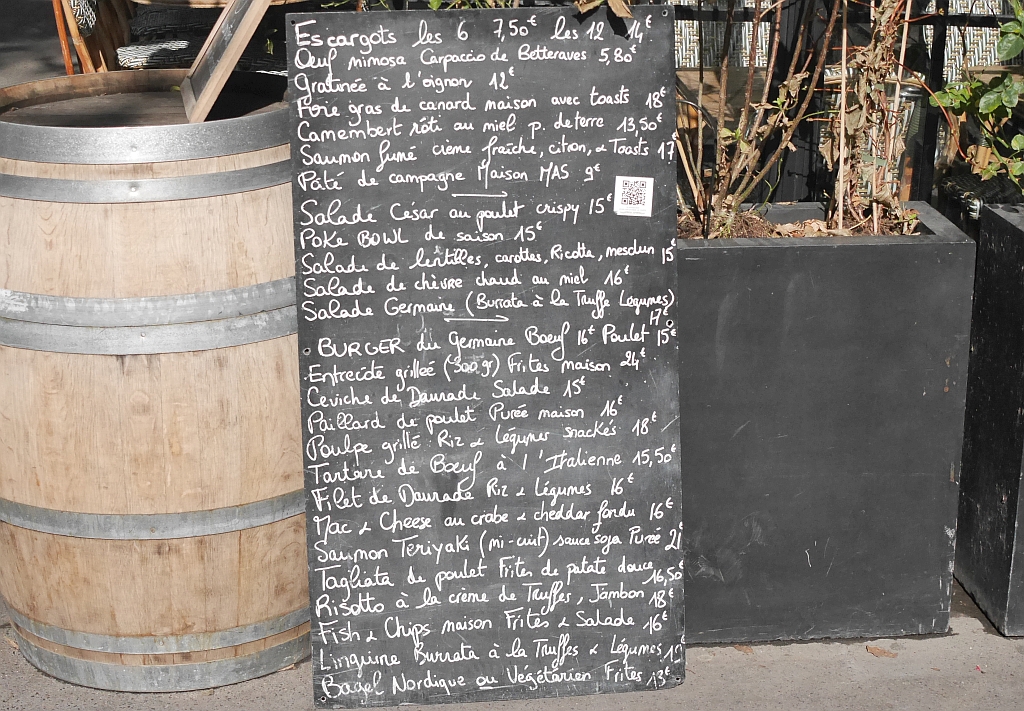 Escargots les 6 7,50€ les 12 14€
Oeuf mimosa Carpaccio de Betteraves 5,80€
Gratinée à l'oignon 12€
Foie gras de canard maison avec toasts 18€
Camembert rôti au miel p. de terre 13,50€
Saumon fumé crème fraîche, citron, & Toasts 17
Pâté de campagne Maison MAS 9€
Salade César au poulet crispy 15€
POKE BOWL de saison 15€
Salade de lentilles, carottes, Ricotta, mesclun 15
Salade de chèvre chaud au miel 16€
Salade Germaine (Burrata à la Truffe Légumes)
17€
BURGER du Germaine Boeuf 16€ Poulet 15€
Entrecôte grillée (300gr) Frites maison 24€
Ceviche de Daurade Salade 15€
Paillard de poulet Purée maison 16€
Poulpe grillé Riz & Légumes snackés 18€
Tartare de Boeuf à l'Italienne 15,50€
Filet de Daurade Riz & Légumes 16€
Mac & Cheese au crabe & cheddar fondu 16€
Saumon Teriyaki (mi-cuit) sauce soja Purée 21
Tagliata de poulet Frites de patate douce 16,50€
Risotto à la crème de Truffes, Jambon 18€
Fish & Chips maison Frites & Salade 16€
Linguine Burrata à la Truffes & Légumes
Bagel Nordique ou Végétarien Frites 13€